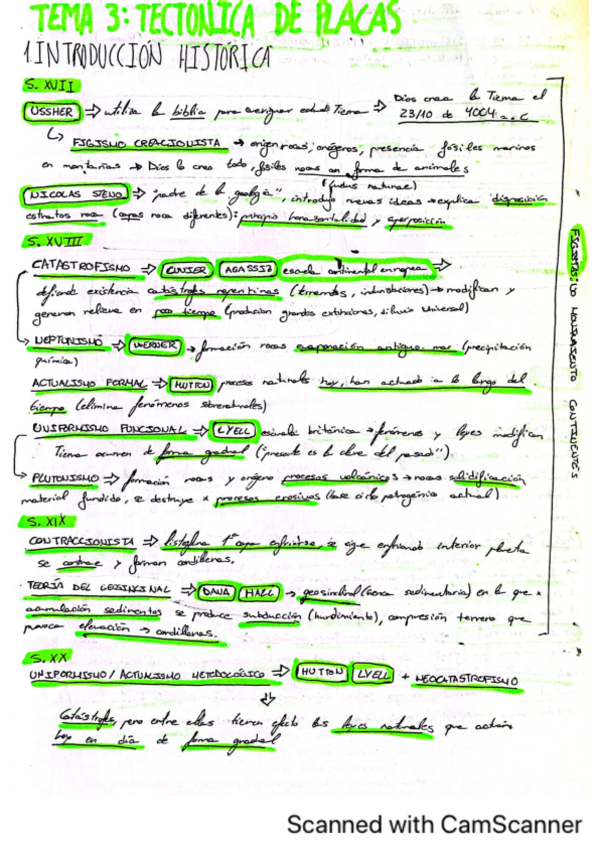 TEMA 3: TECTONICA DE PLACAS
1. INTRODUCCIÓN HISTÓRICA
S. XVII
USSHER ⇒ utiliza la biblia para averiguar edad Tierra ⇒ Dios crea la Tierra el
23/10 de 4004 a.C
↳ FIGISMO CREACIONISTA → origen rocas, orógenos, presencia fósiles marinos
en montañas → Dios lo creo todo, fósiles rocas en forma de animales
(ludus naturae)
NICOLAS STENO ⇒ "padre de la geología", introdujo nuevas ideas → explica disposición
estratos roca (capas roca diferentes): principio horizontalidad y superposición
S. XVIII
CATASTROFISMO ⇒ CUVIER AGASSIZ escuela continental europea ⇒
defiende existencia catástrofes repentinas (terremotos, inundaciones) → modifican y
generan relieve en poco tiempo (producían grandes extinciones, diluvio universal)
NEPTUNISMO ⇒ WERNER → formación rocas evaporación antiguo mar (precipitación
química)
ACTUALISMO FORMAL ⇒ HUTTON procesos naturales hoy, han actuado a lo largo del
tiempo (elimina fenómenos sobrenaturales)
UNIFORMISMO FUNCIONAL ⇒ LYELL escuela británica → fenómenos y leyes modifican
Tierra ocurren de forma gradual ("presente es la clave del pasado").
PLUTONISMO ⇒ formación rocas y orógeno procesos volcánicos → rocas solidificación
material fundido, se destruye x procesos erosivos (base ciclo petrogénico actual)
S. XIX
CONTRACCIONISTA ⇒ 1ª capa enfriarse, se sigue enfriando interior planeta
se contrae y forman cordilleras.
TEORÍA DEL GEOSINCLINAL ⇒ DANA HALL → geosinclinal (zona sedimentaria) en la que x
acumulación sedimentos se produce subducción (hundimiento), compresión terreno que
elevación → cordilleras.
S. XX
UNIFORMISMO / ACTUALISMO METODOLÓGICO ⇒ HUTTON LYELL + NEOCATASTROFISMO
⇓
Catástrofes, pero entre ellas tienen efecto las leyes naturales que actúan
hoy en día de forma gradual
FIGISTAS: NO MOVIMIENTO CONTINENTES
Scanned with CamScanner